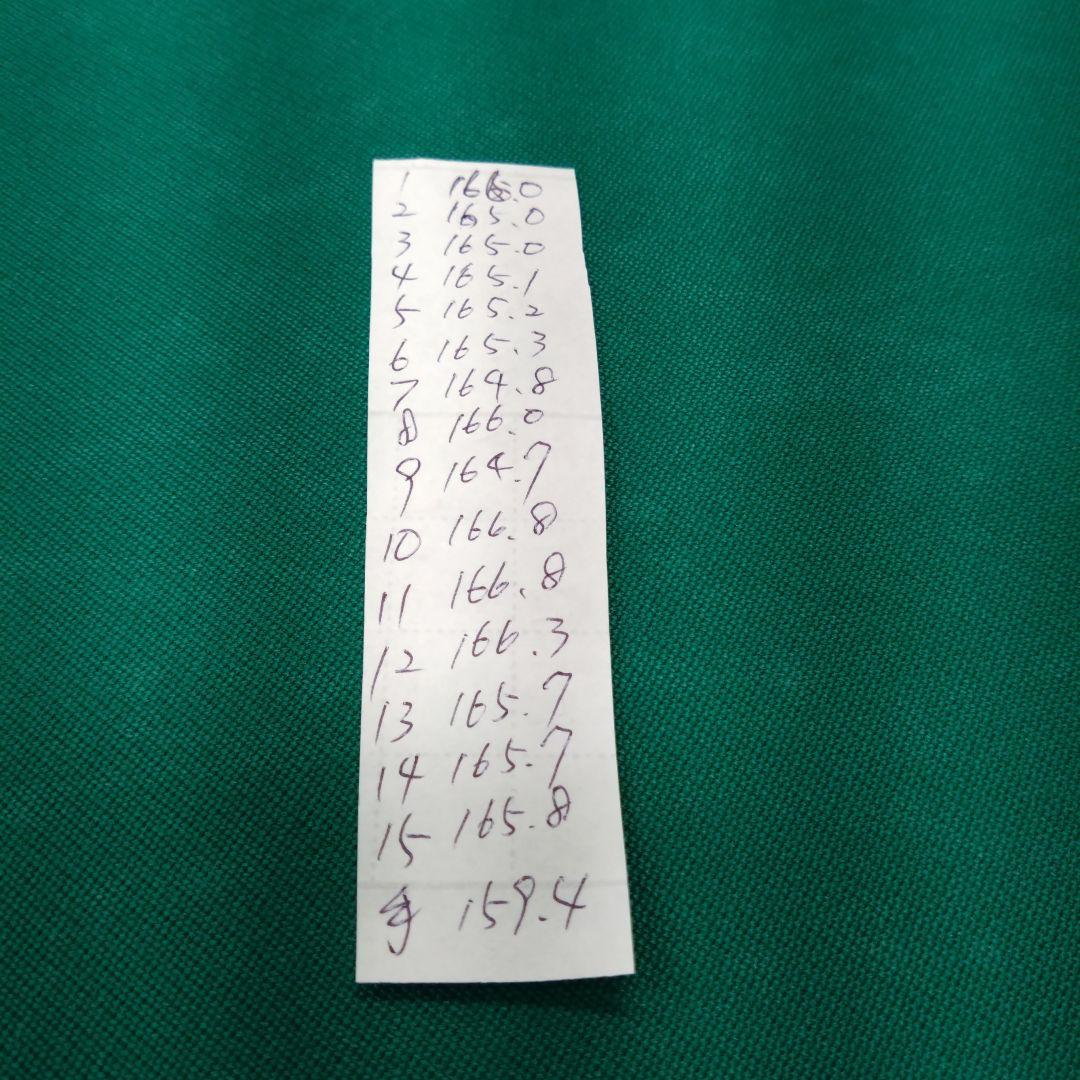 1 166.0
2 165.0
3 165.0
4 165.1
5 165.2
6 165.3
7 164.8
8 166.0
9 164.7
10 166.8
11 166.8
12 166.3
13 165.7
14 165.7
15 165.8
159.4